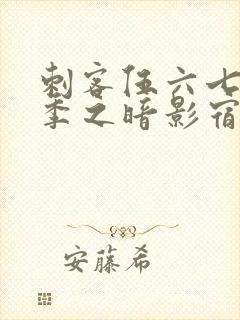 刺客伍六七
季之暗影宿
安藤希